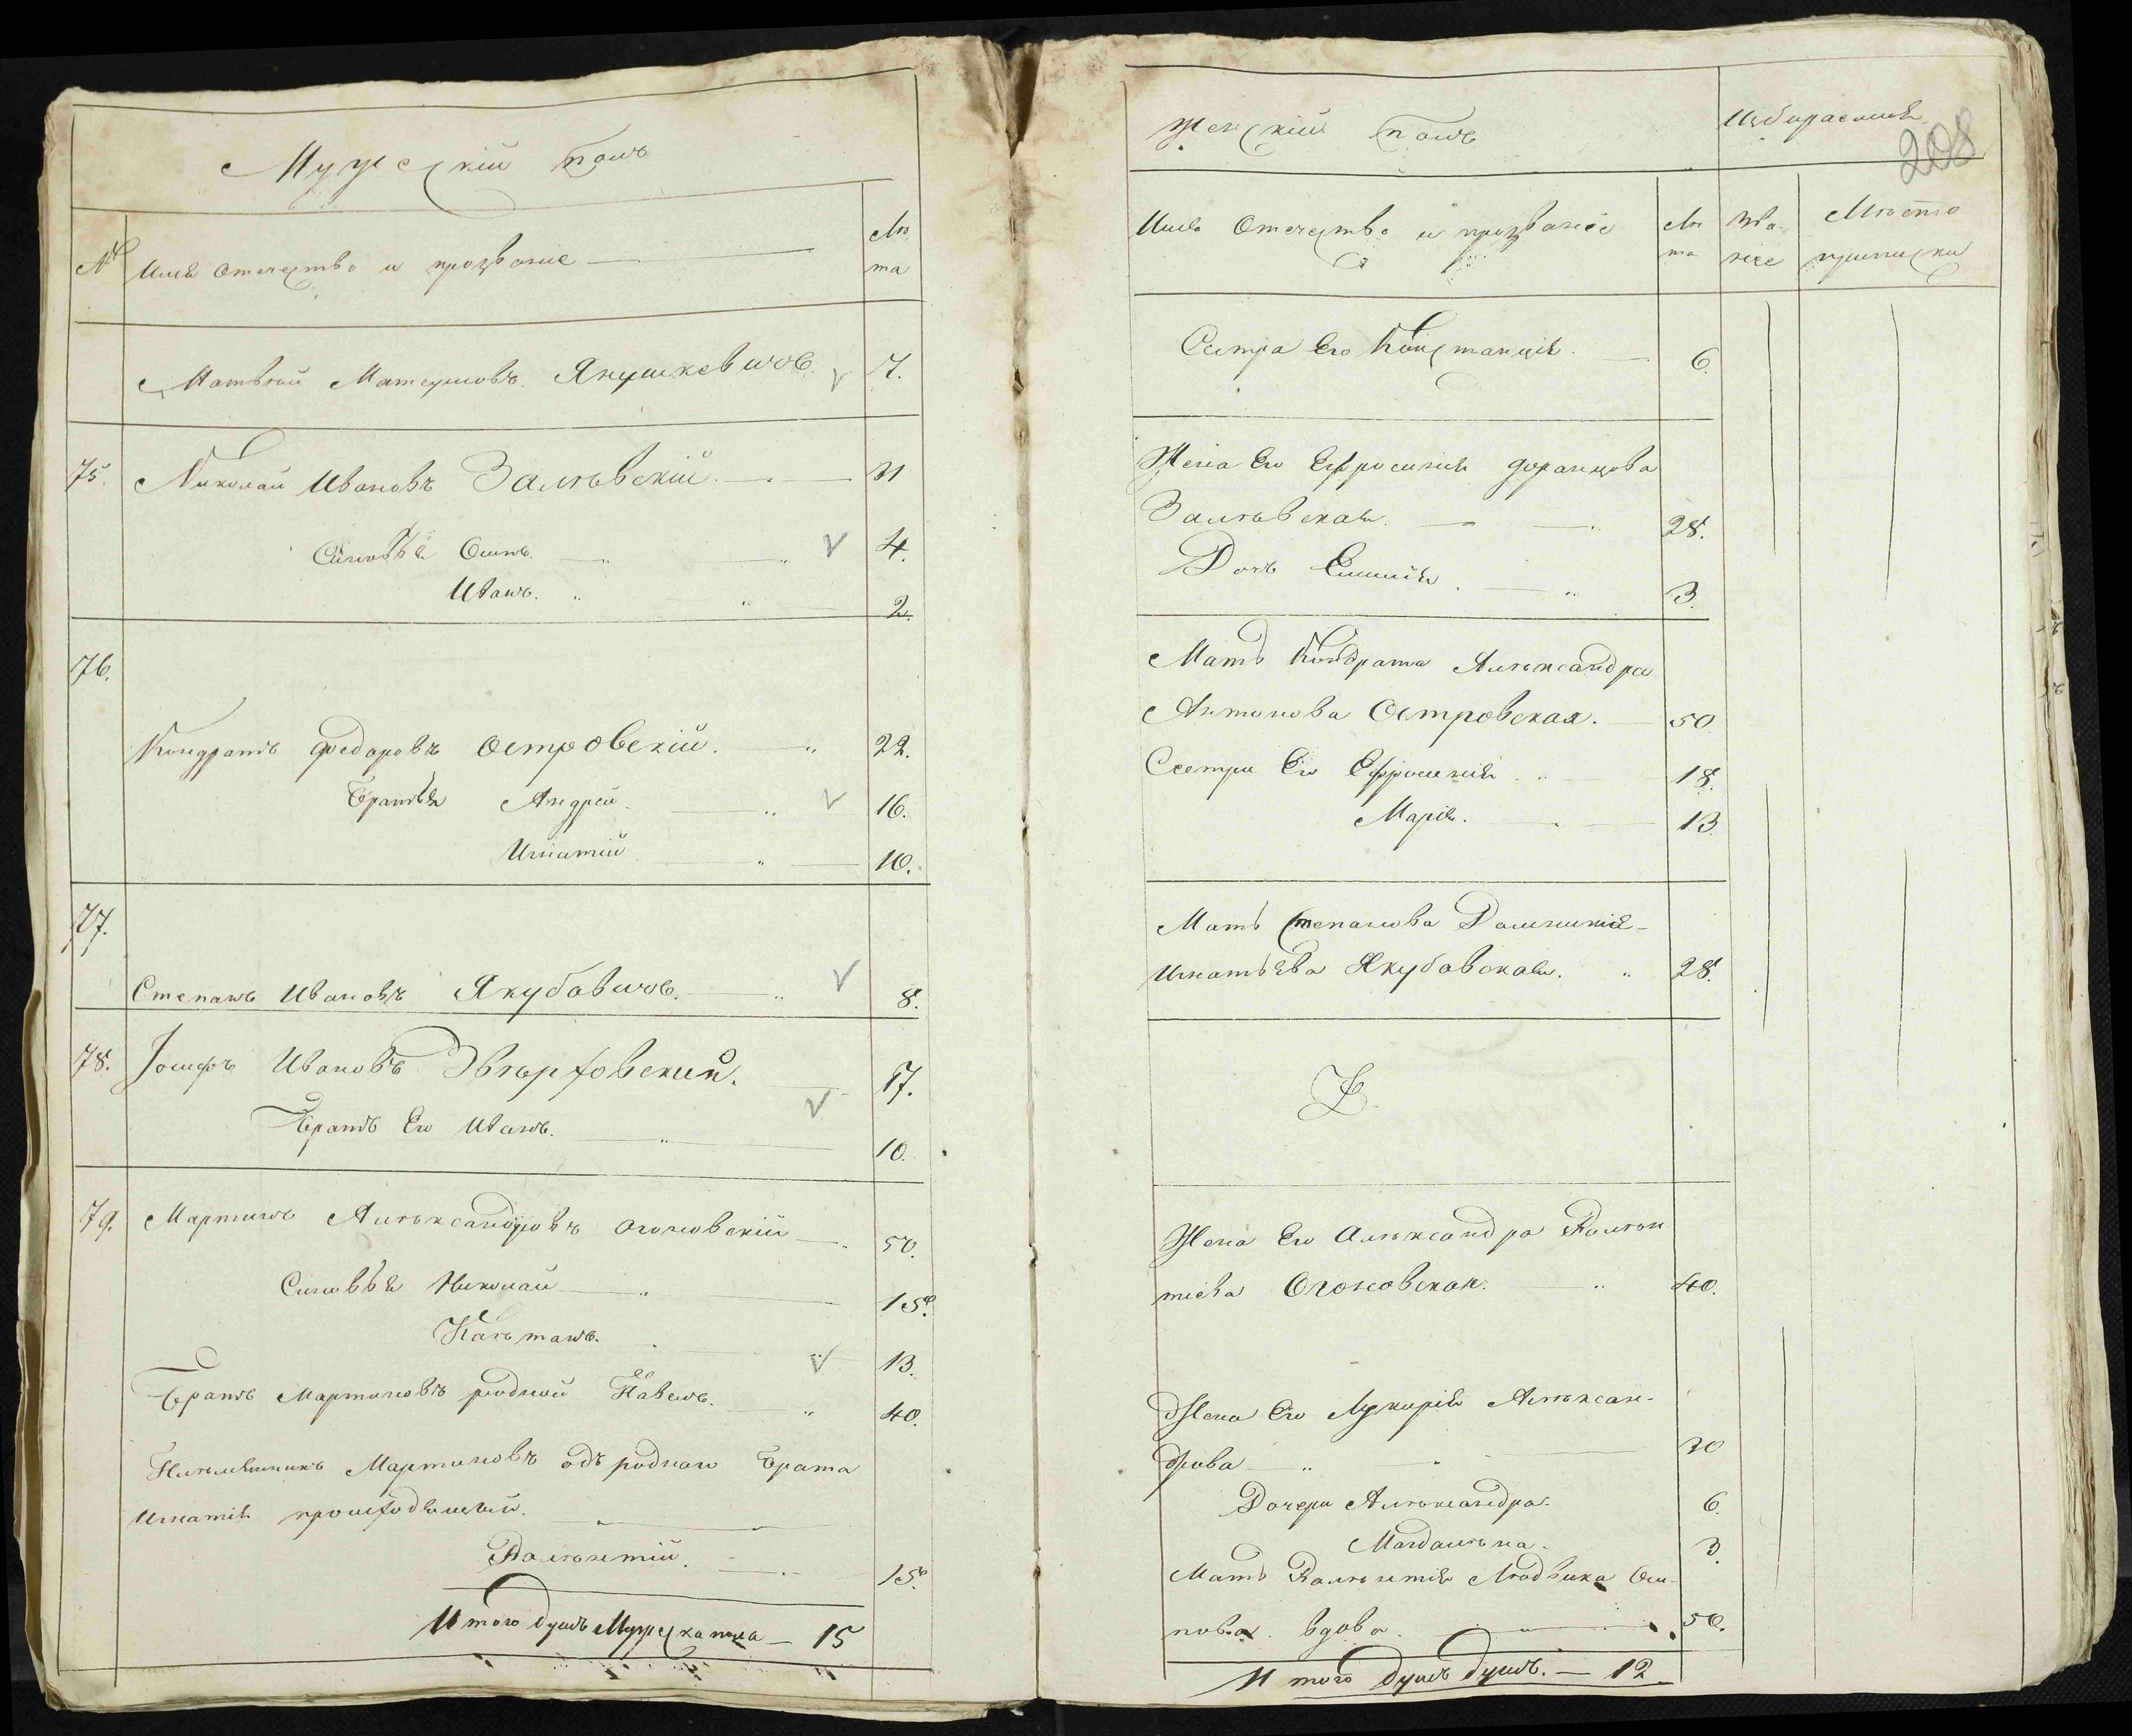 Мужескій полъ
№ Имя Отечество и прозваніе Лѣ
та
Матвѣй Матеушовъ. Янушкевичъ. 7.
75. Николай Ивановъ Залѣвскій. 31
Сыновья Осипъ. 4.
Иванъ. 2.
76.
Кондратъ Федоровъ Островскій. 22.
Братья Андрей. 16.
Игнатій 10.
77.
Степанъ Ивановъ Якубовичъ. 8.
78. Іосифъ Ивановъ Звѣрховский. 17.
Братъ Его Иванъ. 10.
79. Мартинъ Алѣксандровъ Огоновскій 50.
Сыновья Николай 15.
Каѣтанъ. 13.
Братъ Мартиновъ родной Павелъ. 40.
Плѣмянникъ Мартиновъ одъ родного Брата
Игнатія происходящый.
Валѣнтій. 15.
Итого душъ Мужеска пола — 15
Женскій полъ
208
Имя Отечество и прозваніе Лѣ Зва- Мѣсто
та ніе приписки
Сестра Его Констанція. 6.
Жена Его Ефросинія Францова
Залѣвская. 28.
Дочь Емилія. 3.
Мать Кондрата Алѣксандра
Антонова Островская. 50.
Сестри Его Ефросинія 18.
Марія. 13.
Мать Степанова Доминикія
Игнатьева Якубовская. 28.
Жена Его Алѣксандра Валѣн
тіева Огоновская. 40.
Жена Его Лукирія Алѣксан-
дрова 30
Дочери Алѣксандра. 6.
Магдалѣна. 3.
Мать Валѣнтія Людвика Оси-
пова. вдова. 50.
Итого душъ душъ. — 12